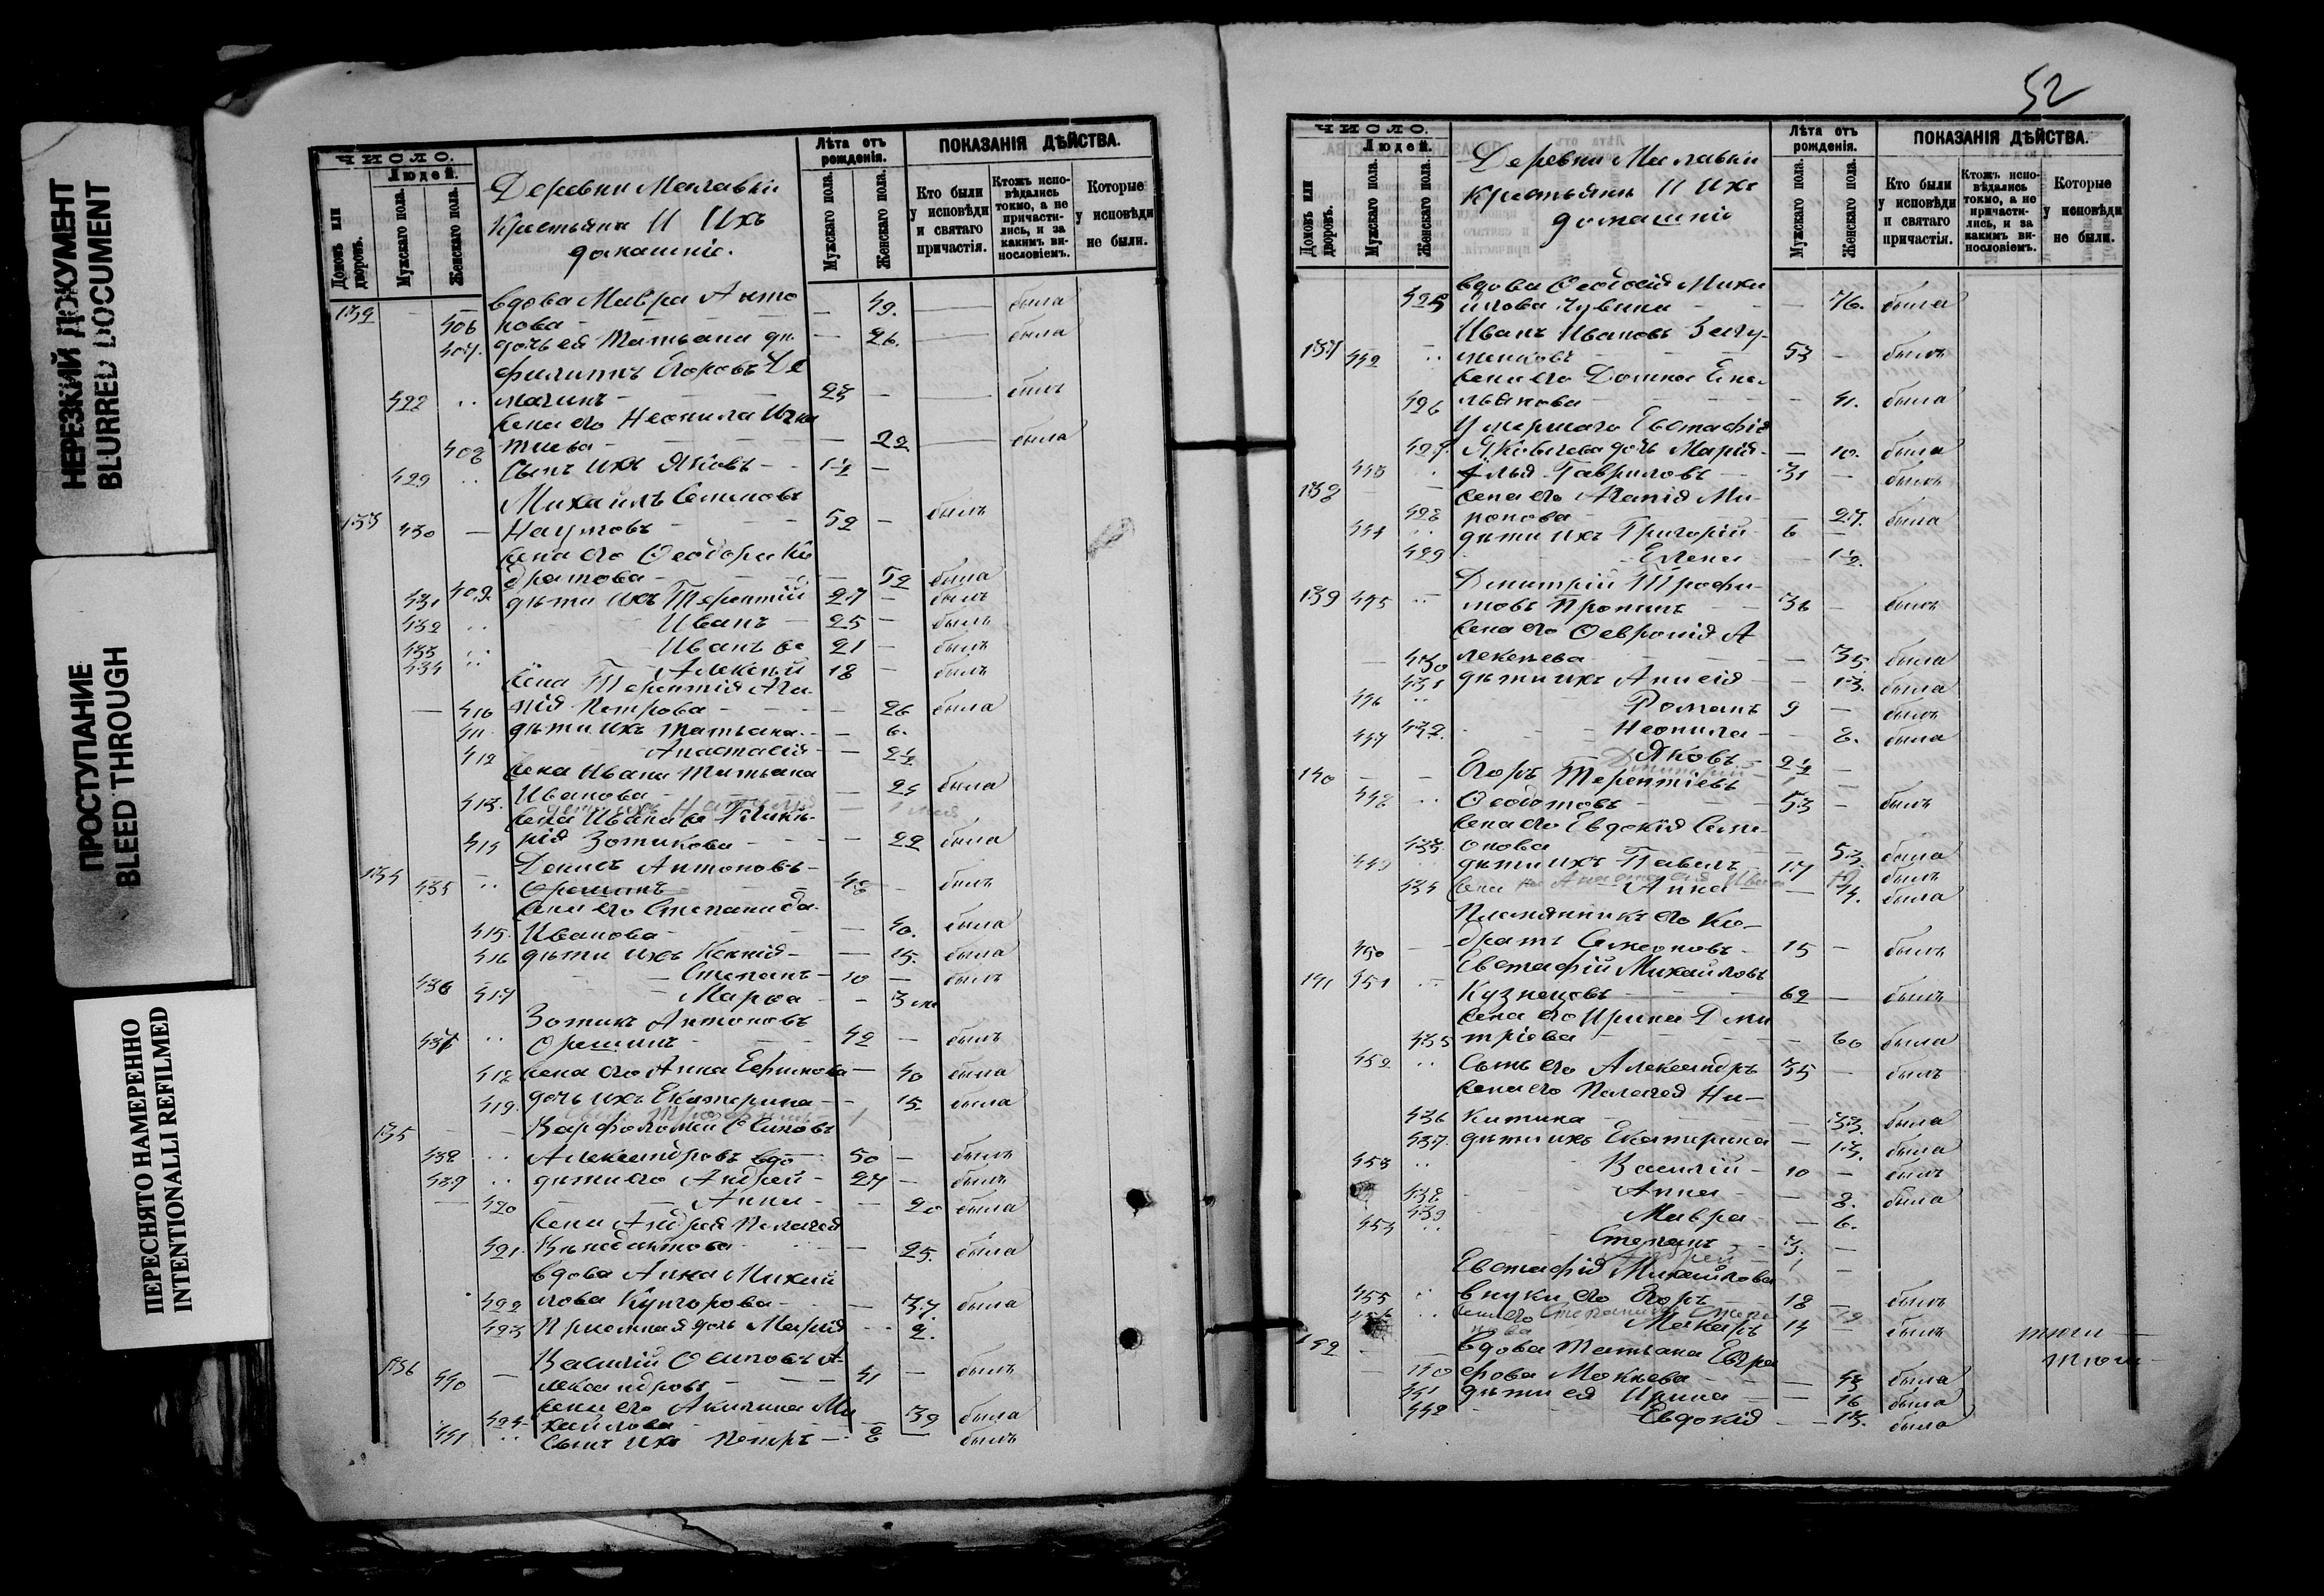 НЕРЕЗКИЙ ДОКУМЕНТ
BLURRED DOCUMENT
ПРОСТУПАНИЕ
BLEED THROUGH
ПЕРЕСНЯТО НАМЕРЕННО
INTENTIONALLI REFILMED
ЧИСЛО.
Людей.
Домовъ или дворовъ.
Мужскаго пола.
Женскаго пола.
Деревни
Крестьяне И Ихъ
домашніе.
Лѣта отъ рожденія.
Мужскаго пола.
Женскаго пола.
ПОКАЗАНІЯ ДѢЙСТВА.
Кто были у исповѣди и святаго причастія.
Ктожъ исповѣдались токмо, а не причастились, и за какимъ винословіемъ.
Которые у исповѣди не были.
132 вдова Мавра Анто
406 нова 49. была
407. дочь ея Татьяна 26. была
Филиппъ Егоровъ
428 25 былъ
жена его Неонила Игна
408 тьева 22 была
429 Сынъ ихъ Яковъ 1/2
Михаилъ Семеновъ
133 430 Наумовъ 52 былъ
жена его Ѳеодора Ко
409. дратова 52 была
431 дѣти ихъ Терентій 27 былъ
432 Иванъ 25 былъ
433 Иванъ 21 былъ
434 Алексѣй 18 былъ
жена Терентія Ага
410 пія Петрова 26 была
411 дѣти ихъ Татьяна 6.
412 Анастасія 2 1/2
жена Ивана Татьяна
413. Ивановa 25 была
жена Ивана Глике
414 рія Зотикова 22 была
134 Денисъ Антоновъ
435 Орешинъ 48 былъ
жена его Степанида
415. Иванова 40. была
416 дѣти ихъ Ксенія 15. была
436 Степанъ 10 былъ
417 Марѳа 3 м
Зотикъ Антоновъ
437 Орешинъ 42 былъ
418 жена его Анна Ефимова 40 была
419. дочь ихъ Екатерина 15. была
135 Варфоломей Осиповъ
438 Александровъ вдо 50 былъ
439 дѣти его Андрей 27 былъ
420 Анна 20 была
жена Андрея Пелагея
421. 25. была
вдова Анна Михай
422 лова 37. была
423 Пріемная дочь Марія 2.
136 Василій Осиповъ А
440 лександровъ 41 былъ
жена его Акилина Ми
424 хайлова 39 была
441 Сынъ ихъ Петръ 8 былъ
52
ЧИСЛО.
Людей.
Домовъ или дворовъ.
Мужскаго пола.
Женскаго пола.
Деревни
Крестьяне И Ихъ
домашніе
Лѣта отъ рожденія.
Мужскаго пола.
Женскаго пола.
ПОКАЗАНІЯ ДѢЙСТВА.
Кто были у исповѣди и святаго причастія.
Ктожъ исповѣдались токмо, а не причастились, и за какимъ винословіемъ.
Которые у исповѣди не были.
вдова Ѳеодосія Миха
425 йлова 76. была
Иванъ Ивановъ
137 442 53 былъ
жена его Домна Еме
426 льянова 41. была
Умершаго Евстафія
427. Яковлева дочь Марія 10. была
443 Илья Гавриловъ 31 былъ
138 жена его Агапія Ми
428 ронова 27. была
444 дѣти ихъ Григорій 6
429 Елена 1/2.
Димитрій Трофи
139 445 мовъ Пронинъ 36 былъ
жена его Ѳевронія А
430 лексѣева 35. была
431 дѣти ихъ Анисія 13. была
446 Романъ 9 былъ
432 Неонила 8. была
447 Яковъ 2 1/2
140 Егоръ Терентіевъ
448 Ѳеодотовъ 53 былъ
жена его Евдокія Симе
433 онова 53. была
449 дѣти ихъ Павелъ 17 былъ
434 Анна 14. была
Племянникъ его Ко
450 дратъ Симеоновъ 15 былъ
Евстафій Михайловъ
141 451 Кузнецовъ 62 былъ
жена его Ирина Дми
435 тріева 60 была
452 Сынъ его Александръ 35 былъ
жена его Пелагея Ни
436 китина 33. была
437. дѣти ихъ Екатерина 13. была
453 Василій 10 былъ
438 Анна 8. была
439 Мавра 6.
454 Степанъ 3.
Евстафія Михайлова
455 внуки его Егоръ 18 былъ
456 Макаръ 14 былъ
142 вдова Татьяна
440 Мокѣева 43 была
441 дѣти ея Ирина 16 была
442 Евдокія 13. была